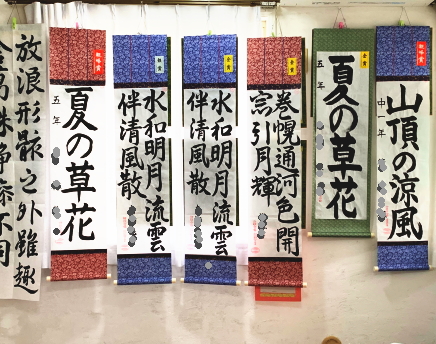 山頂の涼風
中一年
金賞
夏の草花
五年
金賞
巻幌通河色開
窓引月輝
金賞
水和明月流雲
伴清風散
水和明月流雲
伴清風散
夏の草花
五年
放浪形骸之外雖趣
萬殊静躁不同